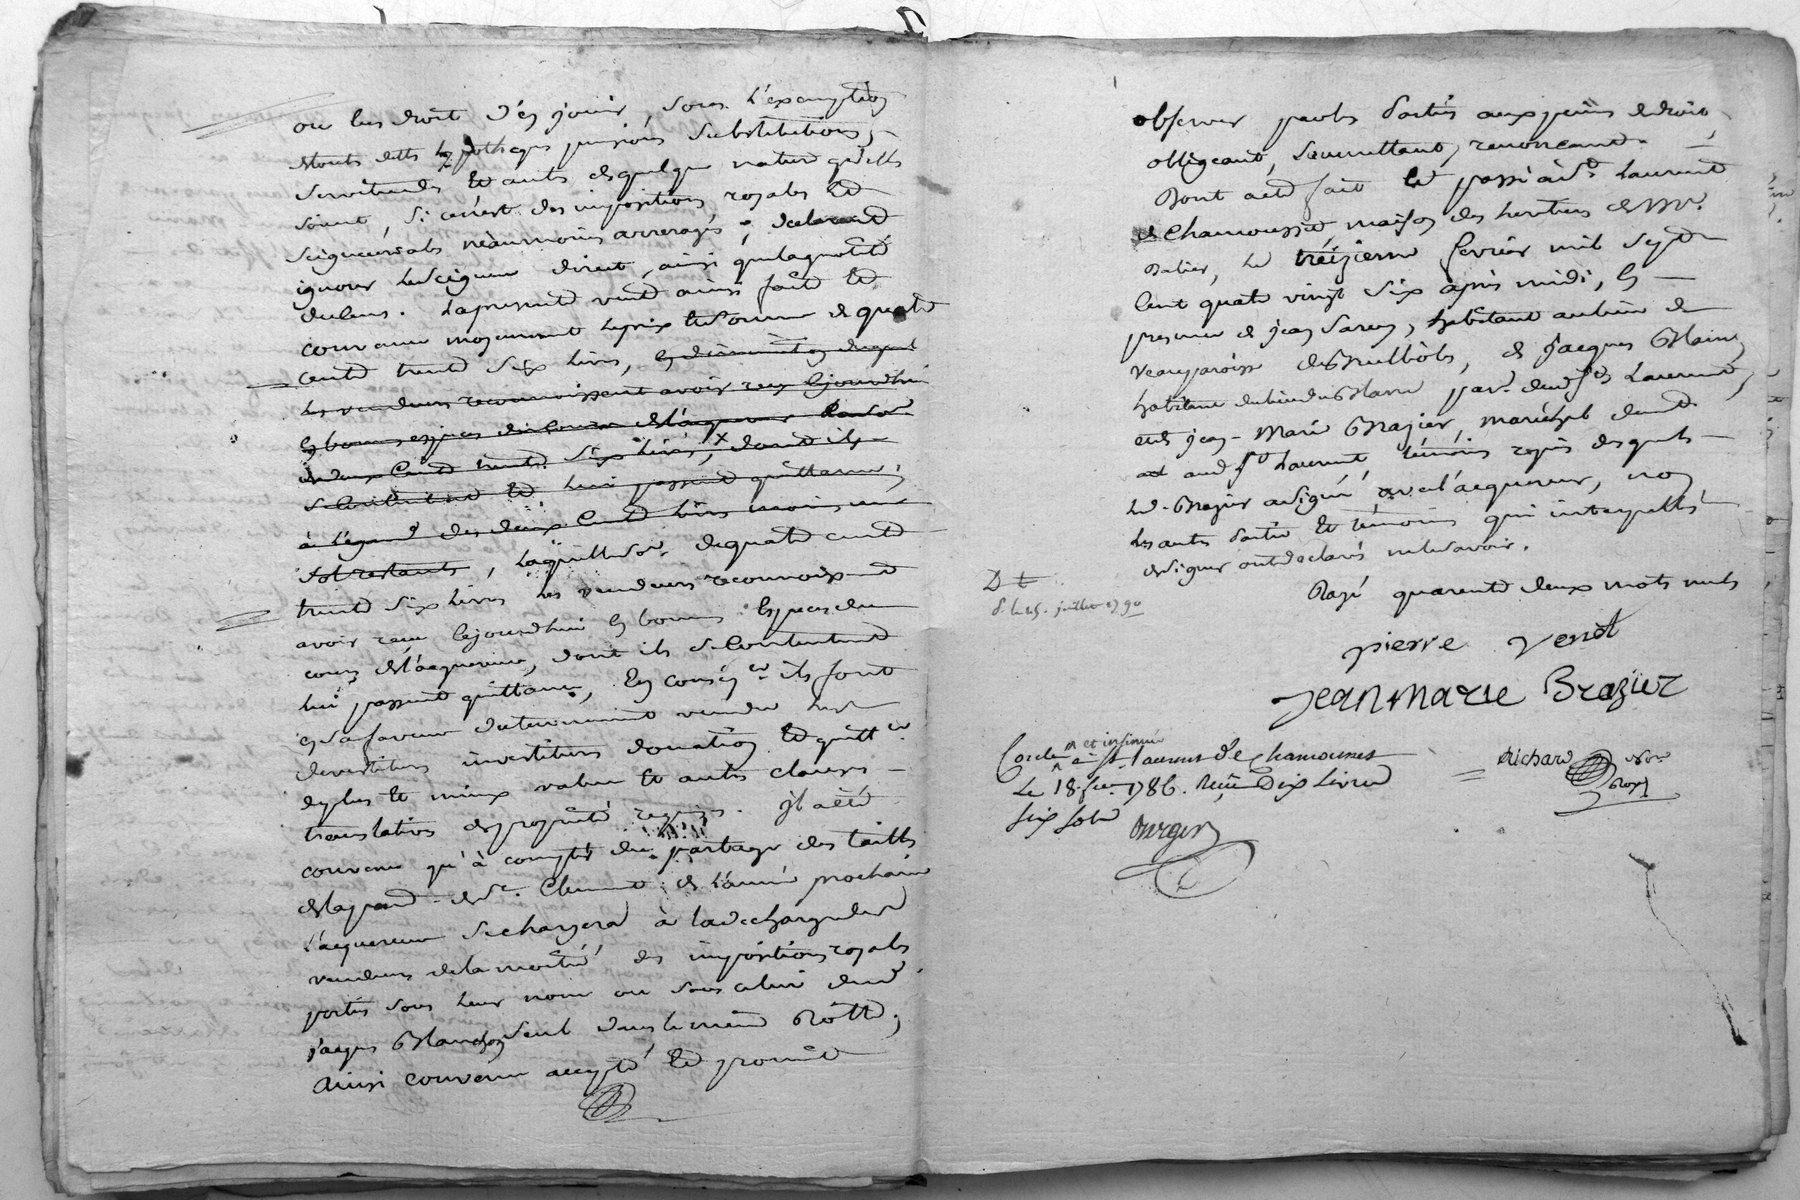 ou eu droit d'en jouir, sous l'exemption
de touts dettes hypotheques pensions substitutions,
servitudes et auts de quelque nature qu'elles
soient, si ce n'est des impositions royales et
seigneurials néanmoins arreragés; declarant
ignorer le seigneur direct, ainsi que la quotité
du cens. La presente vente ainsi faite et
convenue moyennant le prix et somme de quatre
cents trente six livres, en diminution duquel
les vendeurs reconnoissent avoir reçu cejourdhui
en bonnes especes du cours de l'acquereur la so.
de deux cents trente six livres, dont ils
se contentent et lui passent quittance,
à l'égard des deux cents livres
restants, laquelle so. de quatre cents
trente six livres les vendeurs reconnoissent
avoir reçu cejourdhui en bonnes especes du
cours de l'acquereur, dont ils se contentent
lui passent quittance, en conség.ce ils font
en sa faveur
devestiture investiture donation et quitt.ce
de plus et mieux value et autres clauses
translatives de propriété requises. Il a été
convenu qu'à compter du partage des tailles
de la par. de St. Clement de l'année prochaine
l'acquereur se chargera à la decharge des
vendeurs de la moitié des impositions royales
portées sous leur nom ou sous celui dud.
jacques Blanchon seul dans le meme Rolle,
ainsi convenu accepté et promis
observer par les parties aux peines de droit
obligeant, soumettant, renonceant.
Dont acte fait et passé à St. Laurent
de Chamousset maison des heritiers de Mr.
Dalier, le treizieme fevrier mil sept
cent quatre vingt six après midi, en
presence de jean , habitant au lieu de
paroisse de Brullioles, de jacques Blain
habitant du lieu du par. dud. St. Laurent,
et de jean-Marie Brazier, maréchal demt.
aud. St. Laurent, témoins requis desquels
led. Brazier a signé avec l'acquereur, non
les autres parties et témoins qui interpellés
de signer ont declaré ne le savoir.
Rayé quarante deux mots nuls
pierre Venet
jeanmarie Brazier
D t
d. le 25. juillet 1790
Richard no.re
Roy.
Conle. et insinué
à St. laurent de Chamousset
Le 18. fev. 1786. Reçu Dix Livres
six sols